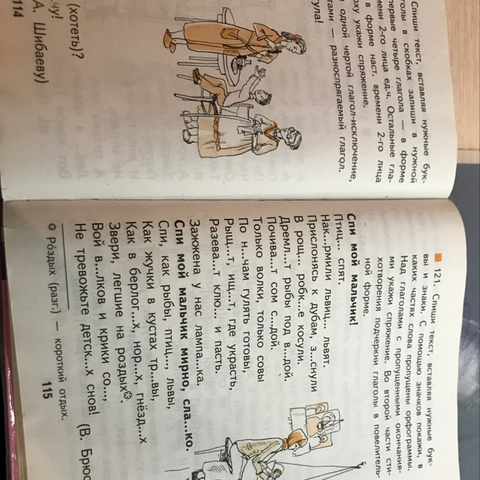 Спиши текст, вставляя нужные бук-
глаголы в скобках запиши в нужной
первые четыре глагола — в форме
времени 2-го лица ед.ч. Остальные гла-
в форме наст. времени 2-го лица
ху укажи спряжение.
одной чертой глагол-исключение,
тами — разноспрягаемый глагол.
гула!
(хотеть)?
чу!
А. Шибаеву)
114
121. Спиши текст, вставляя нужные бук-
вы и знаки. С помощью значков покажи, в
каких частях слова пропущены орфограммы.
Над глаголами с пропущенными окончания-
ми укажи спряжение. Во второй части сти-
хотворения подчеркни глаголы в повелитель-
ной форме.
Спи мой мальчик!
Птиц... спят.
Нак...рмили львиц... львят.
Прислонясь к дубам, з...снули
В рощ... робк...е косули.
Дремл...т рыбы под в...дой.
Почива...т сом с...дой.
Только волки, только совы
По н...чам гулять готовы,
Рыщ...т, ищ...т, где украсть,
Разева...т клюв... и пасть.
Зажжена у нас лампа...ка.
Спи мой мальчик мирно, сла...ко.
Спи, как рыбы, птиц..., львы,
Как жучки в кустах тр...вы,
Как в берлог...х, нор...х, гнёзд...х
Звери, легшие на роздых☺.
Вой в...лков и крики со...,
Не тревожьте детск...х снов!
(В. Брюс
☺ Ро́здых (разг.) — короткий отдых.
115